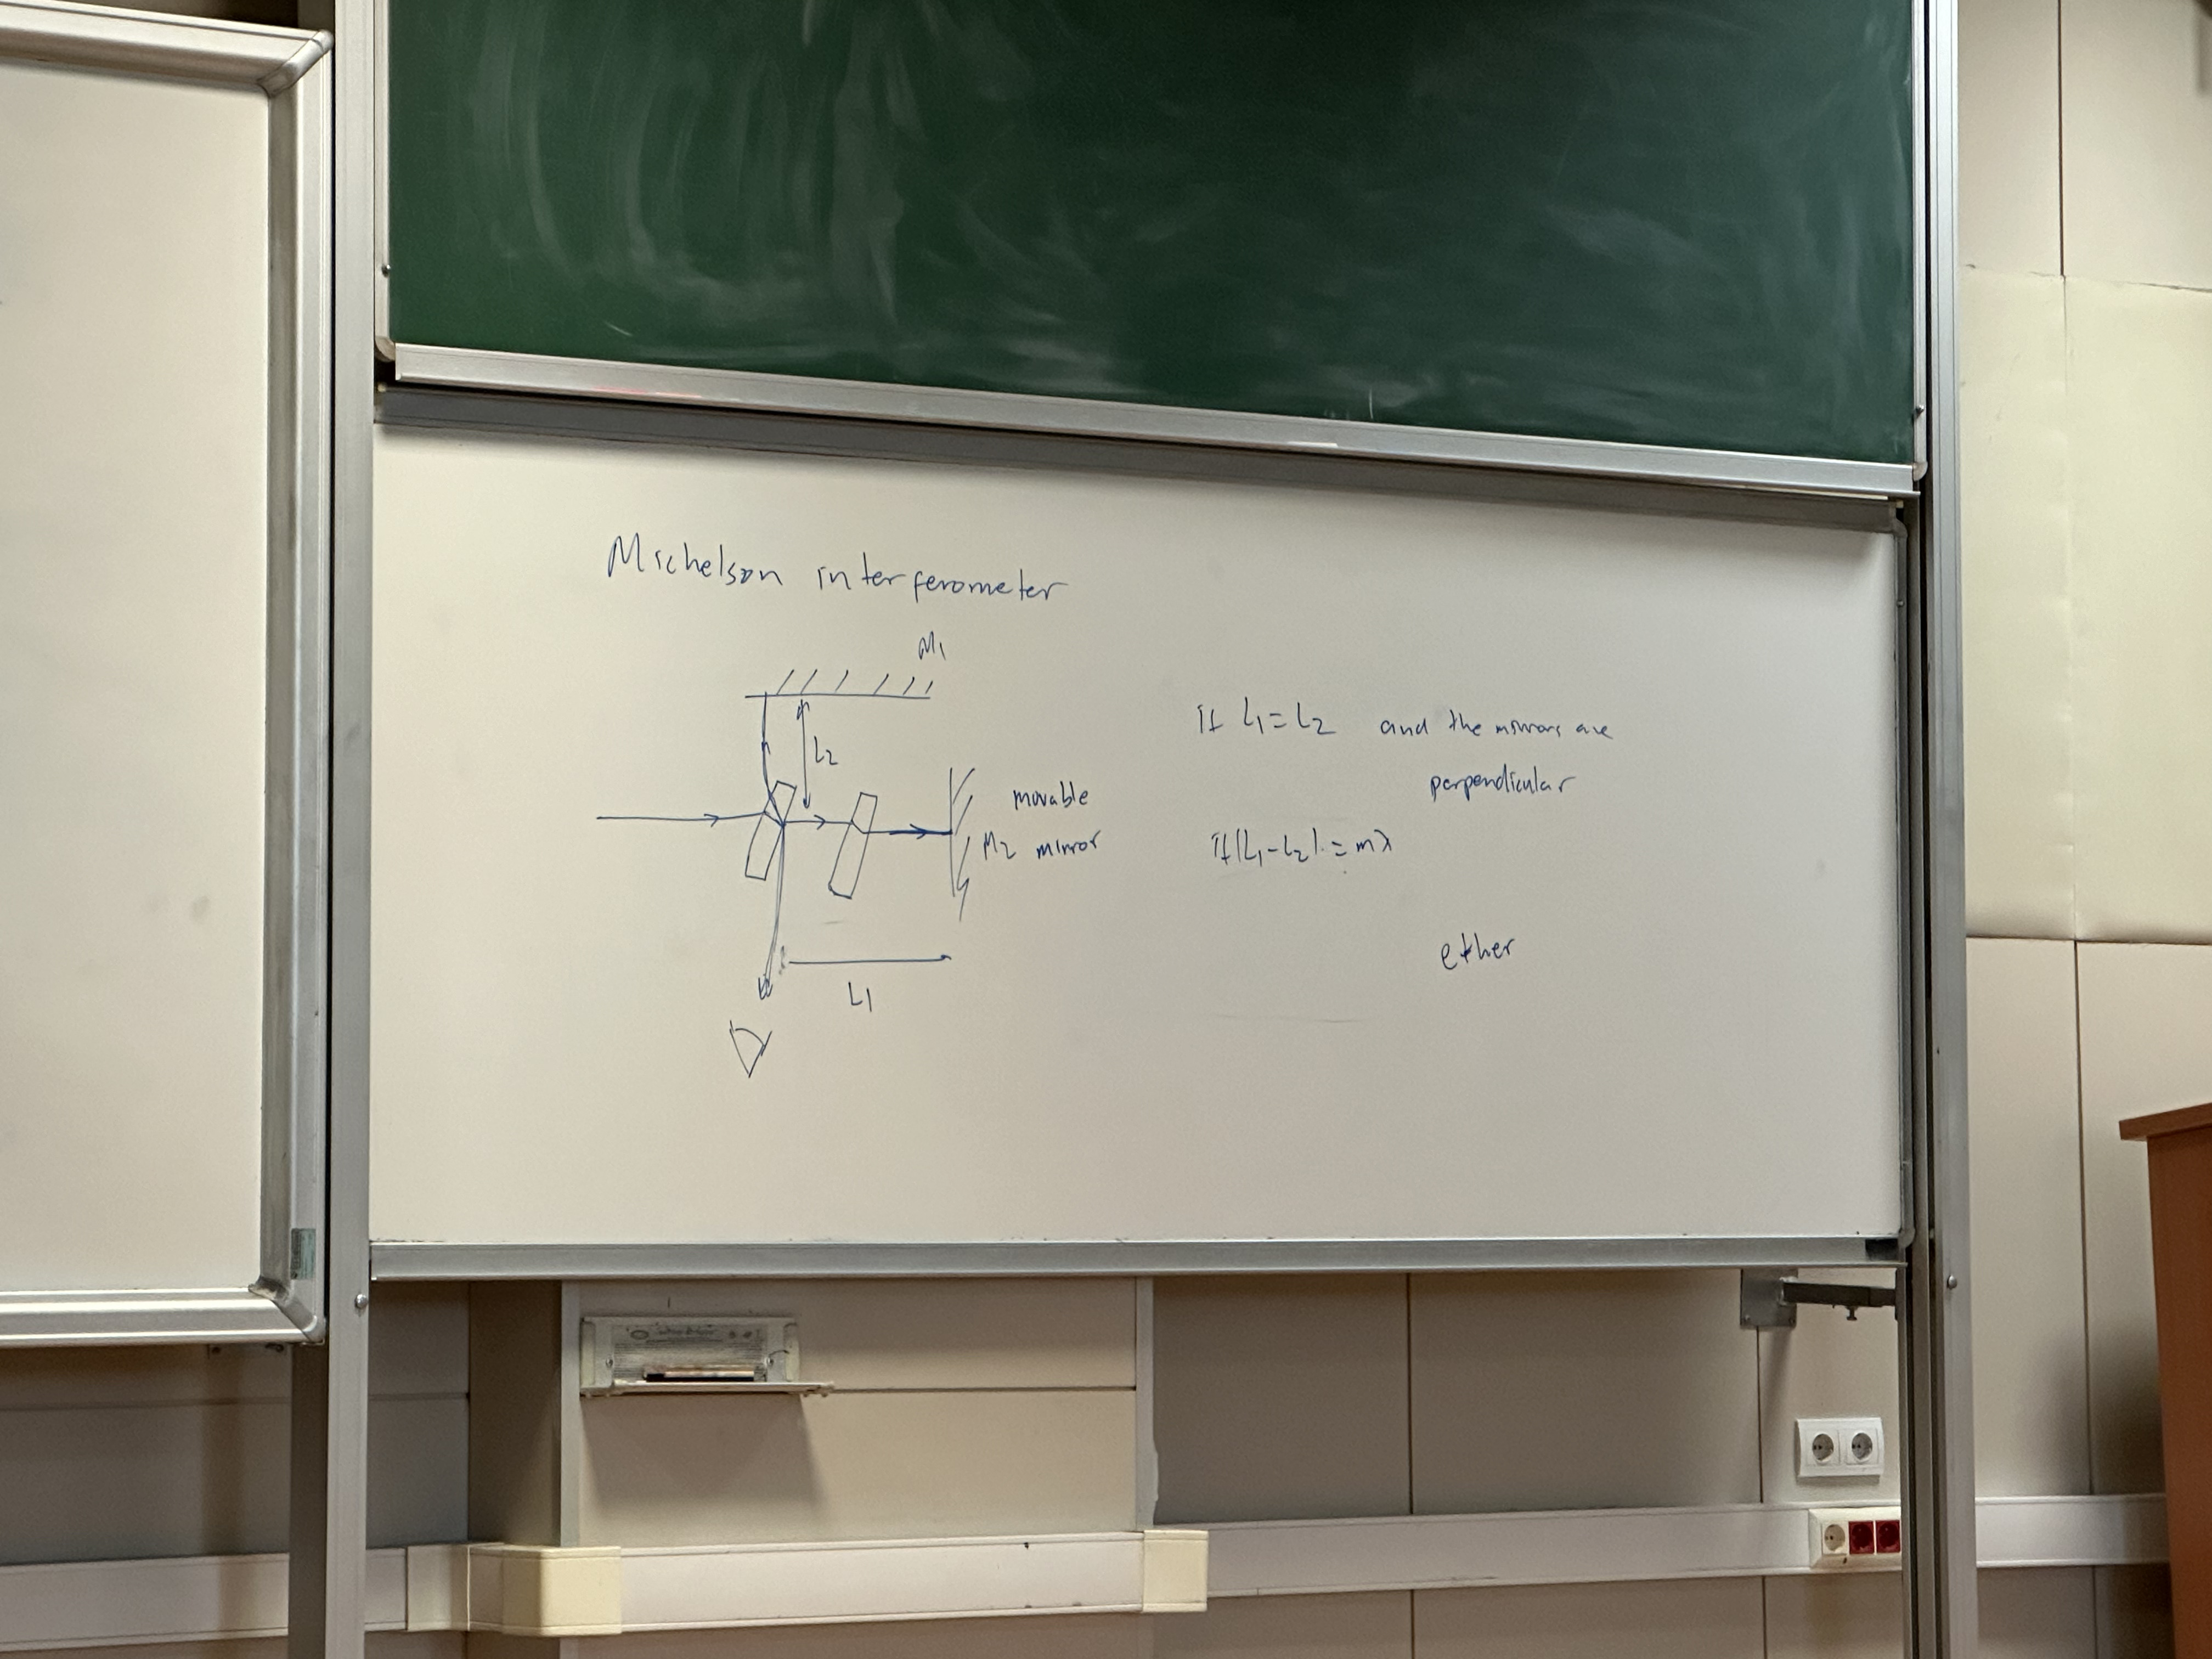 Michelson interferometer
M1
L2
movable
M2 mirror
L1
If L1 = L2 and the mirrors are
perpendicular
If |L1 - L2| = mλ
ether